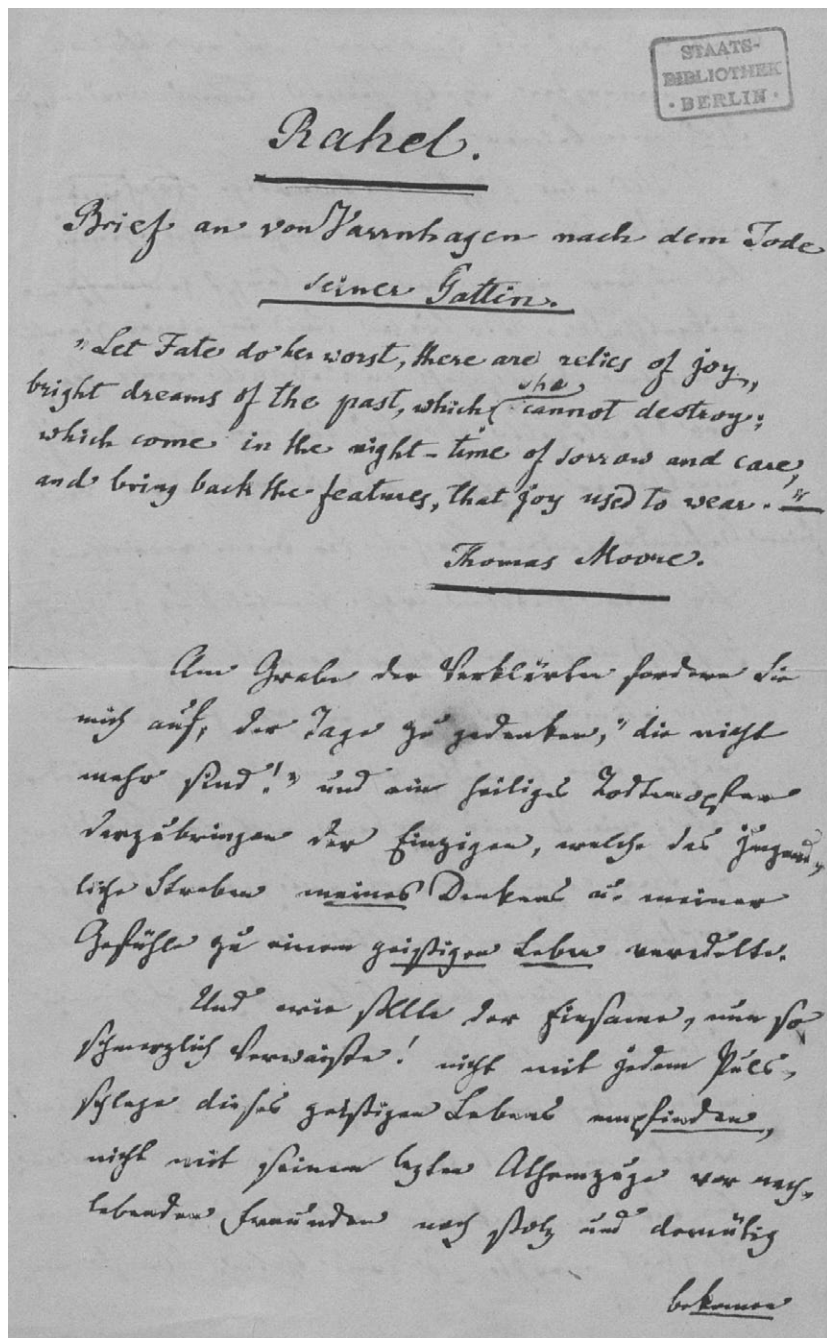 STAATS-
BIBLIOTHEK
· BERLIN ·
Rahel.
Brief an von Varnhagen nach dem Tode
seiner Gattin.
"Let Fate do her worst, there are relics of joy,
bright dreams of the past, which she cannot destroy;
which come in the night-time of sorrow and care,
and bring back the features, that joy used to wear."
Thomas Moore.
Am Grabe der Verklärten fordern Sie
mich auf, der Tage zu gedenken, "die nicht
mehr sind!" und ein heiliges Todtenopfer
darzubringen der Einzigen, welche das jugend-
liche Streben meines Denkens u. meiner
Gefühle zu einem geistigen Leben veredelte.
Und wie sollte der Einsame, nun so
schmerzlich Verwaiste! nicht mit jedem Puls-
schlage dieses geistigen Lebens empfinden,
nicht mit seinem lezten Athemzuge vor nach-
lebenden Freunden noch stolz und demütig
bekennen